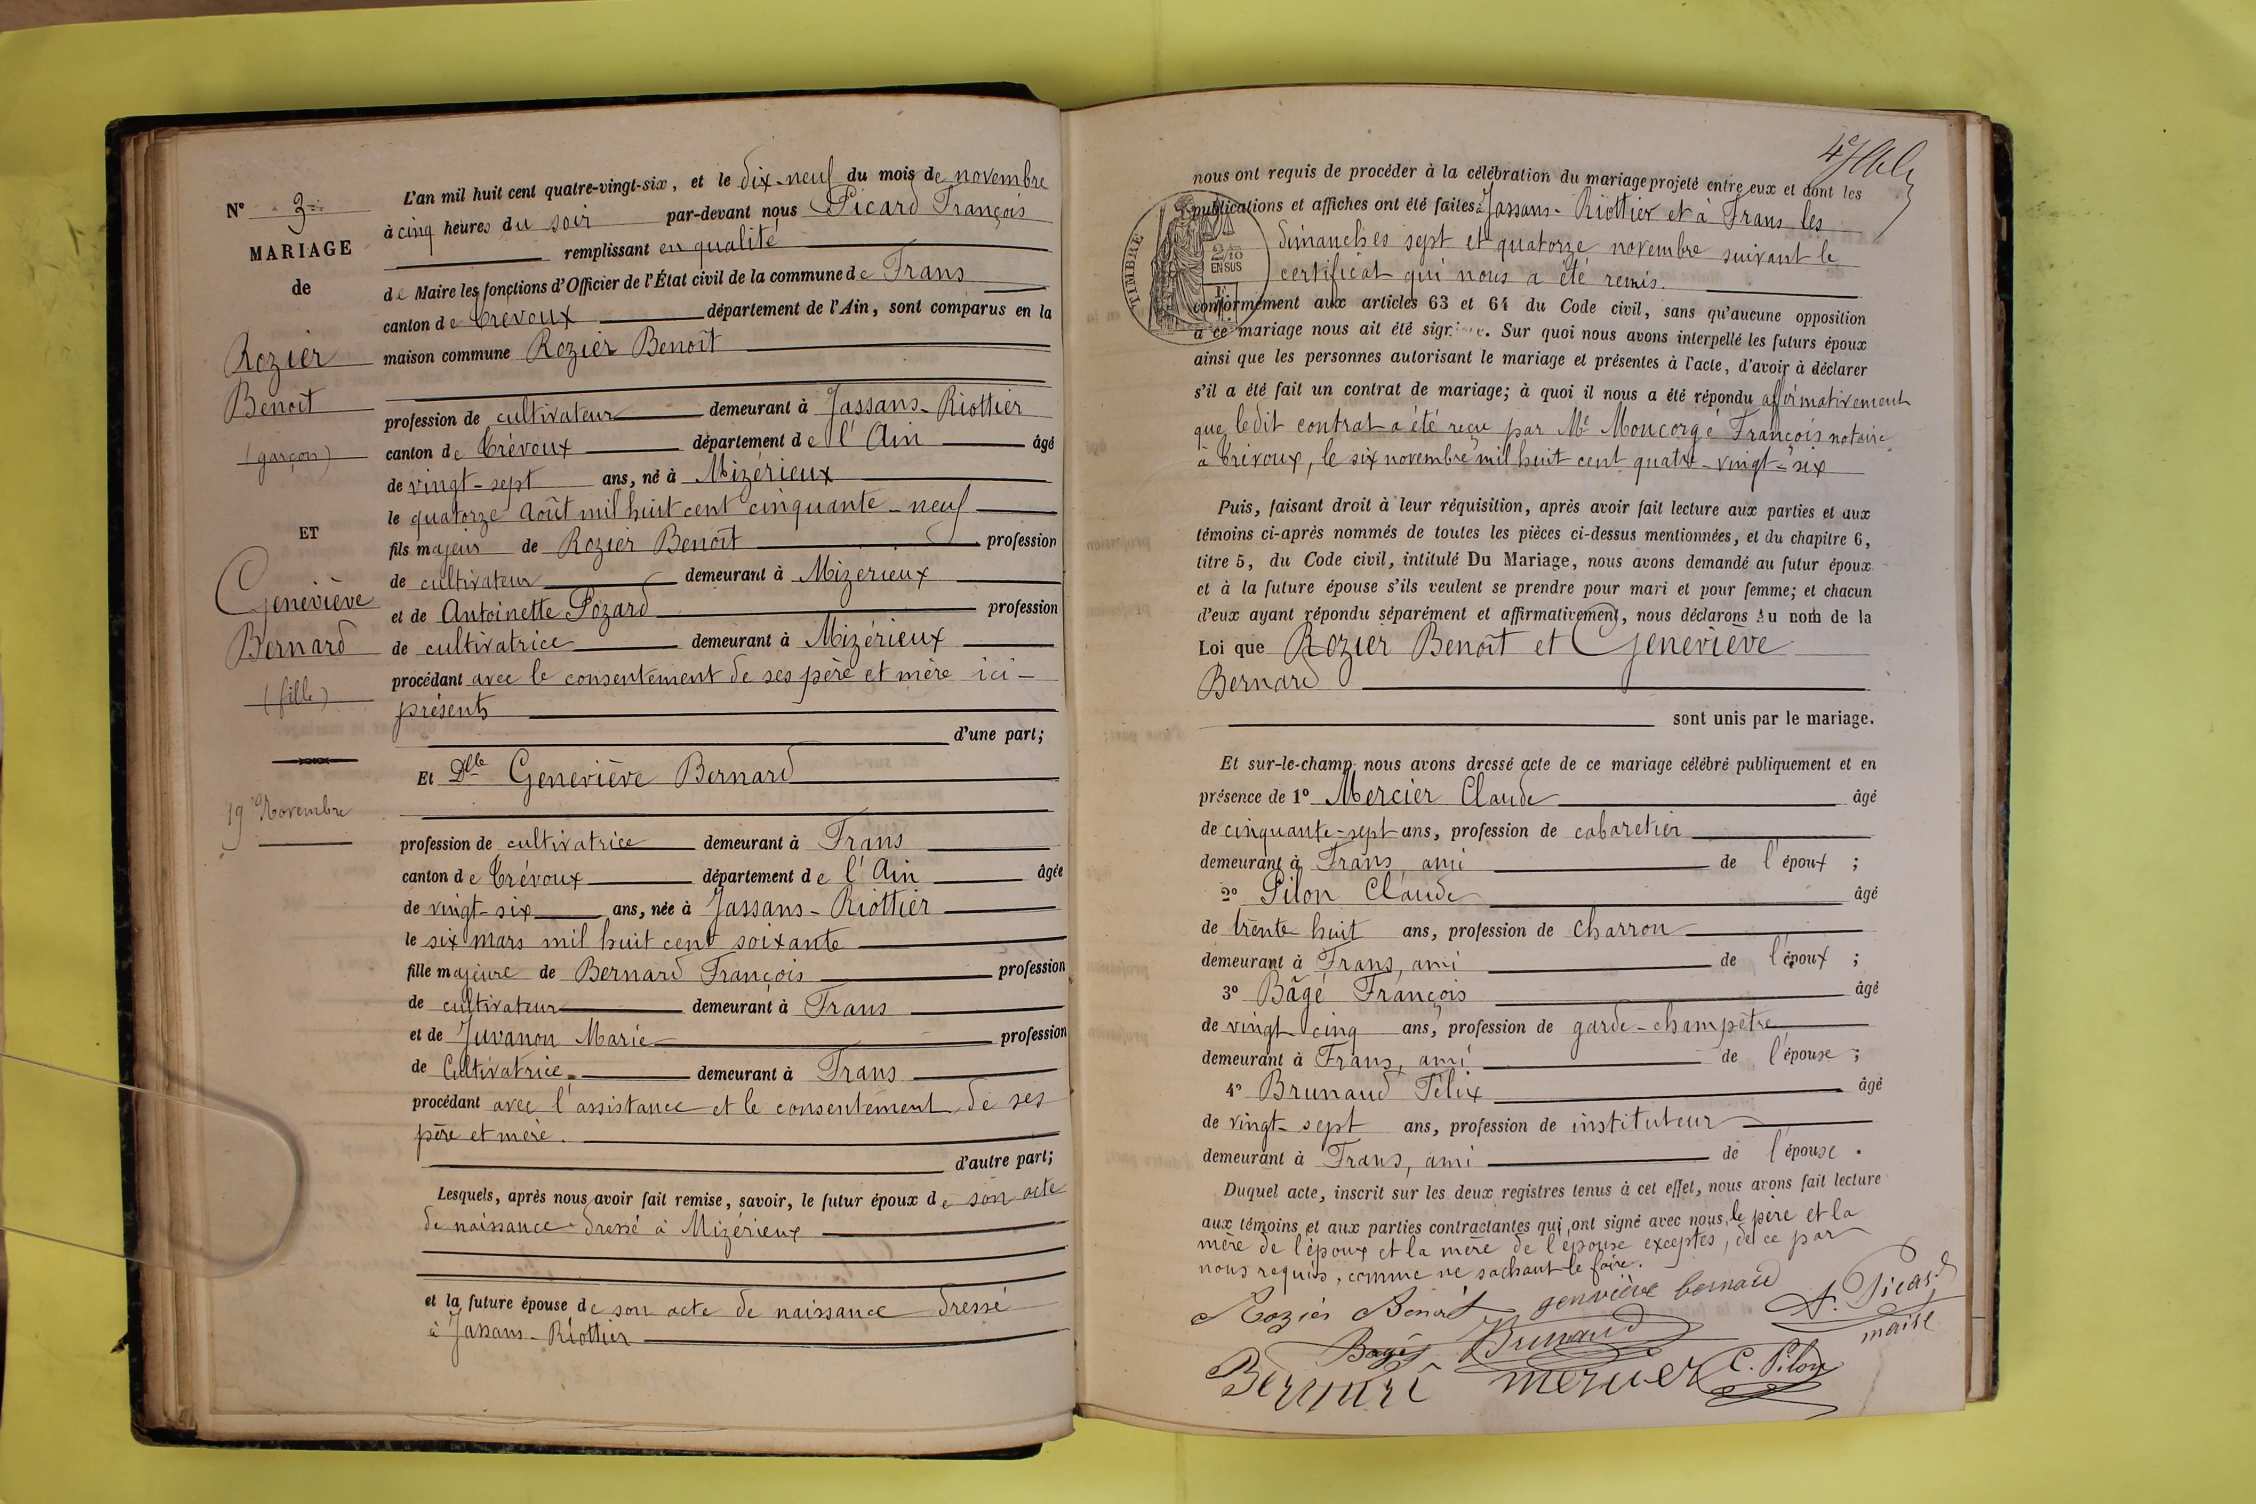 N° 3
MARIAGE
de
Rozier
Benoît
(garçon)
ET
Geneviève
Bernard
(fille)
19 Novembre
L'an mil huit cent quatre-vingt-six, et le dix-neuf du mois de novembre
à cinq heures du soir par-devant nous Picard François
remplissant en qualité
de Maire les fonctions d'Officier de l'État civil de la commune de Frans
canton de Trévoux département de l'Ain, sont comparus en la
maison commune Rozier Benoît
profession de cultivateur demeurant à Jassans-Riottier
canton de Trévoux département de l'Ain âgé
de vingt-sept ans, né à Mizérieux
le quatorze Août mil huit cent cinquante-neuf
fils majeur de Rozier Benoît profession
de cultivateur demeurant à Mizerieux
et de Antoinette Pozard profession
de cultivatrice demeurant à Mizérieux
procédant avec le consentement de ses père et mère ici-
présents
d'une part;
Et Dlle Geneviève Bernard
profession de cultivatrice demeurant à Frans
canton de Trévoux département de l'Ain âgée
de vingt-six ans, née à Jassans-Riottier
le six mars mil huit cent soixante
fille majeure de Bernard François profession
de cultivateur demeurant à Frans
et de Juvanon Marie profession
de Cultivatrice demeurant à Frans
procédant avec l'assistance et le consentement de ses
père et mère.
d'autre part;
Lesquels, après nous avoir fait remise, savoir, le futur époux de son acte
de naissance dressé à Mizérieux
et la future épouse de son acte de naissance dressé
à Jassans-Riottier
nous ont requis de procéder à la célébration du mariage projeté entre eux et dont les
publications et affiches ont été faites à Jassans-Riottier et à Frans les
dimanches sept et quatorze novembre suivant le
certificat qui nous a été remis.
TIMBRE
2/10
EN SUS
conformément aux articles 63 et 64 du Code civil, sans qu'aucune opposition
à ce mariage nous ait été signifiée. Sur quoi nous avons interpellé les futurs époux
ainsi que les personnes autorisant le mariage et présentes à l'acte, d'avoir à déclarer
s'il a été fait un contrat de mariage; à quoi il nous a été répondu affirmativement
que ledit contrat a été reçu par Me Moncorgé François notaire
à Trévoux, le six novembre mil huit cent quatre-vingt-six
Puis, faisant droit à leur réquisition, après avoir fait lecture aux parties et aux
témoins ci-après nommés de toutes les pièces ci-dessus mentionnées, et du chapitre 6,
titre 5, du Code civil, intitulé Du Mariage, nous avons demandé au futur époux
et à la future épouse s'ils veulent se prendre pour mari et pour femme; et chacun
d'eux ayant répondu séparément et affirmativement, nous déclarons Au nom de la
Loi que Rozier Benoît et Geneviève
Bernard
sont unis par le mariage.
Et sur-le-champ nous avons dressé acte de ce mariage célébré publiquement et en
présence de 1° Mercier Claude âgé
de cinquante-sept ans, profession de cabaretier
demeurant à Frans, ami de l'époux ;
2° Pilon Claude âgé
de trente huit ans, profession de charron
demeurant à Frans, ami de l'époux ;
3° Bâgé François âgé
de vingt cinq ans, profession de garde-champêtre
demeurant à Frans, ami de l'épouse ;
4° Brunaud Félix âgé
de vingt-sept ans, profession de instituteur
demeurant à Frans, ami de l'épouse .
Duquel acte, inscrit sur les deux registres tenus à cet effet, nous avons fait lecture
aux témoins et aux parties contractantes qui ont signé avec nous, le père et la
mère de l'époux et la mère de l'épouse exceptés, de ce par
nous requis, comme ne sachant le faire.
Rozier Benoit genviève bernard
Bagé Brunaud Picard maire
Bernard mercier C. Pilon